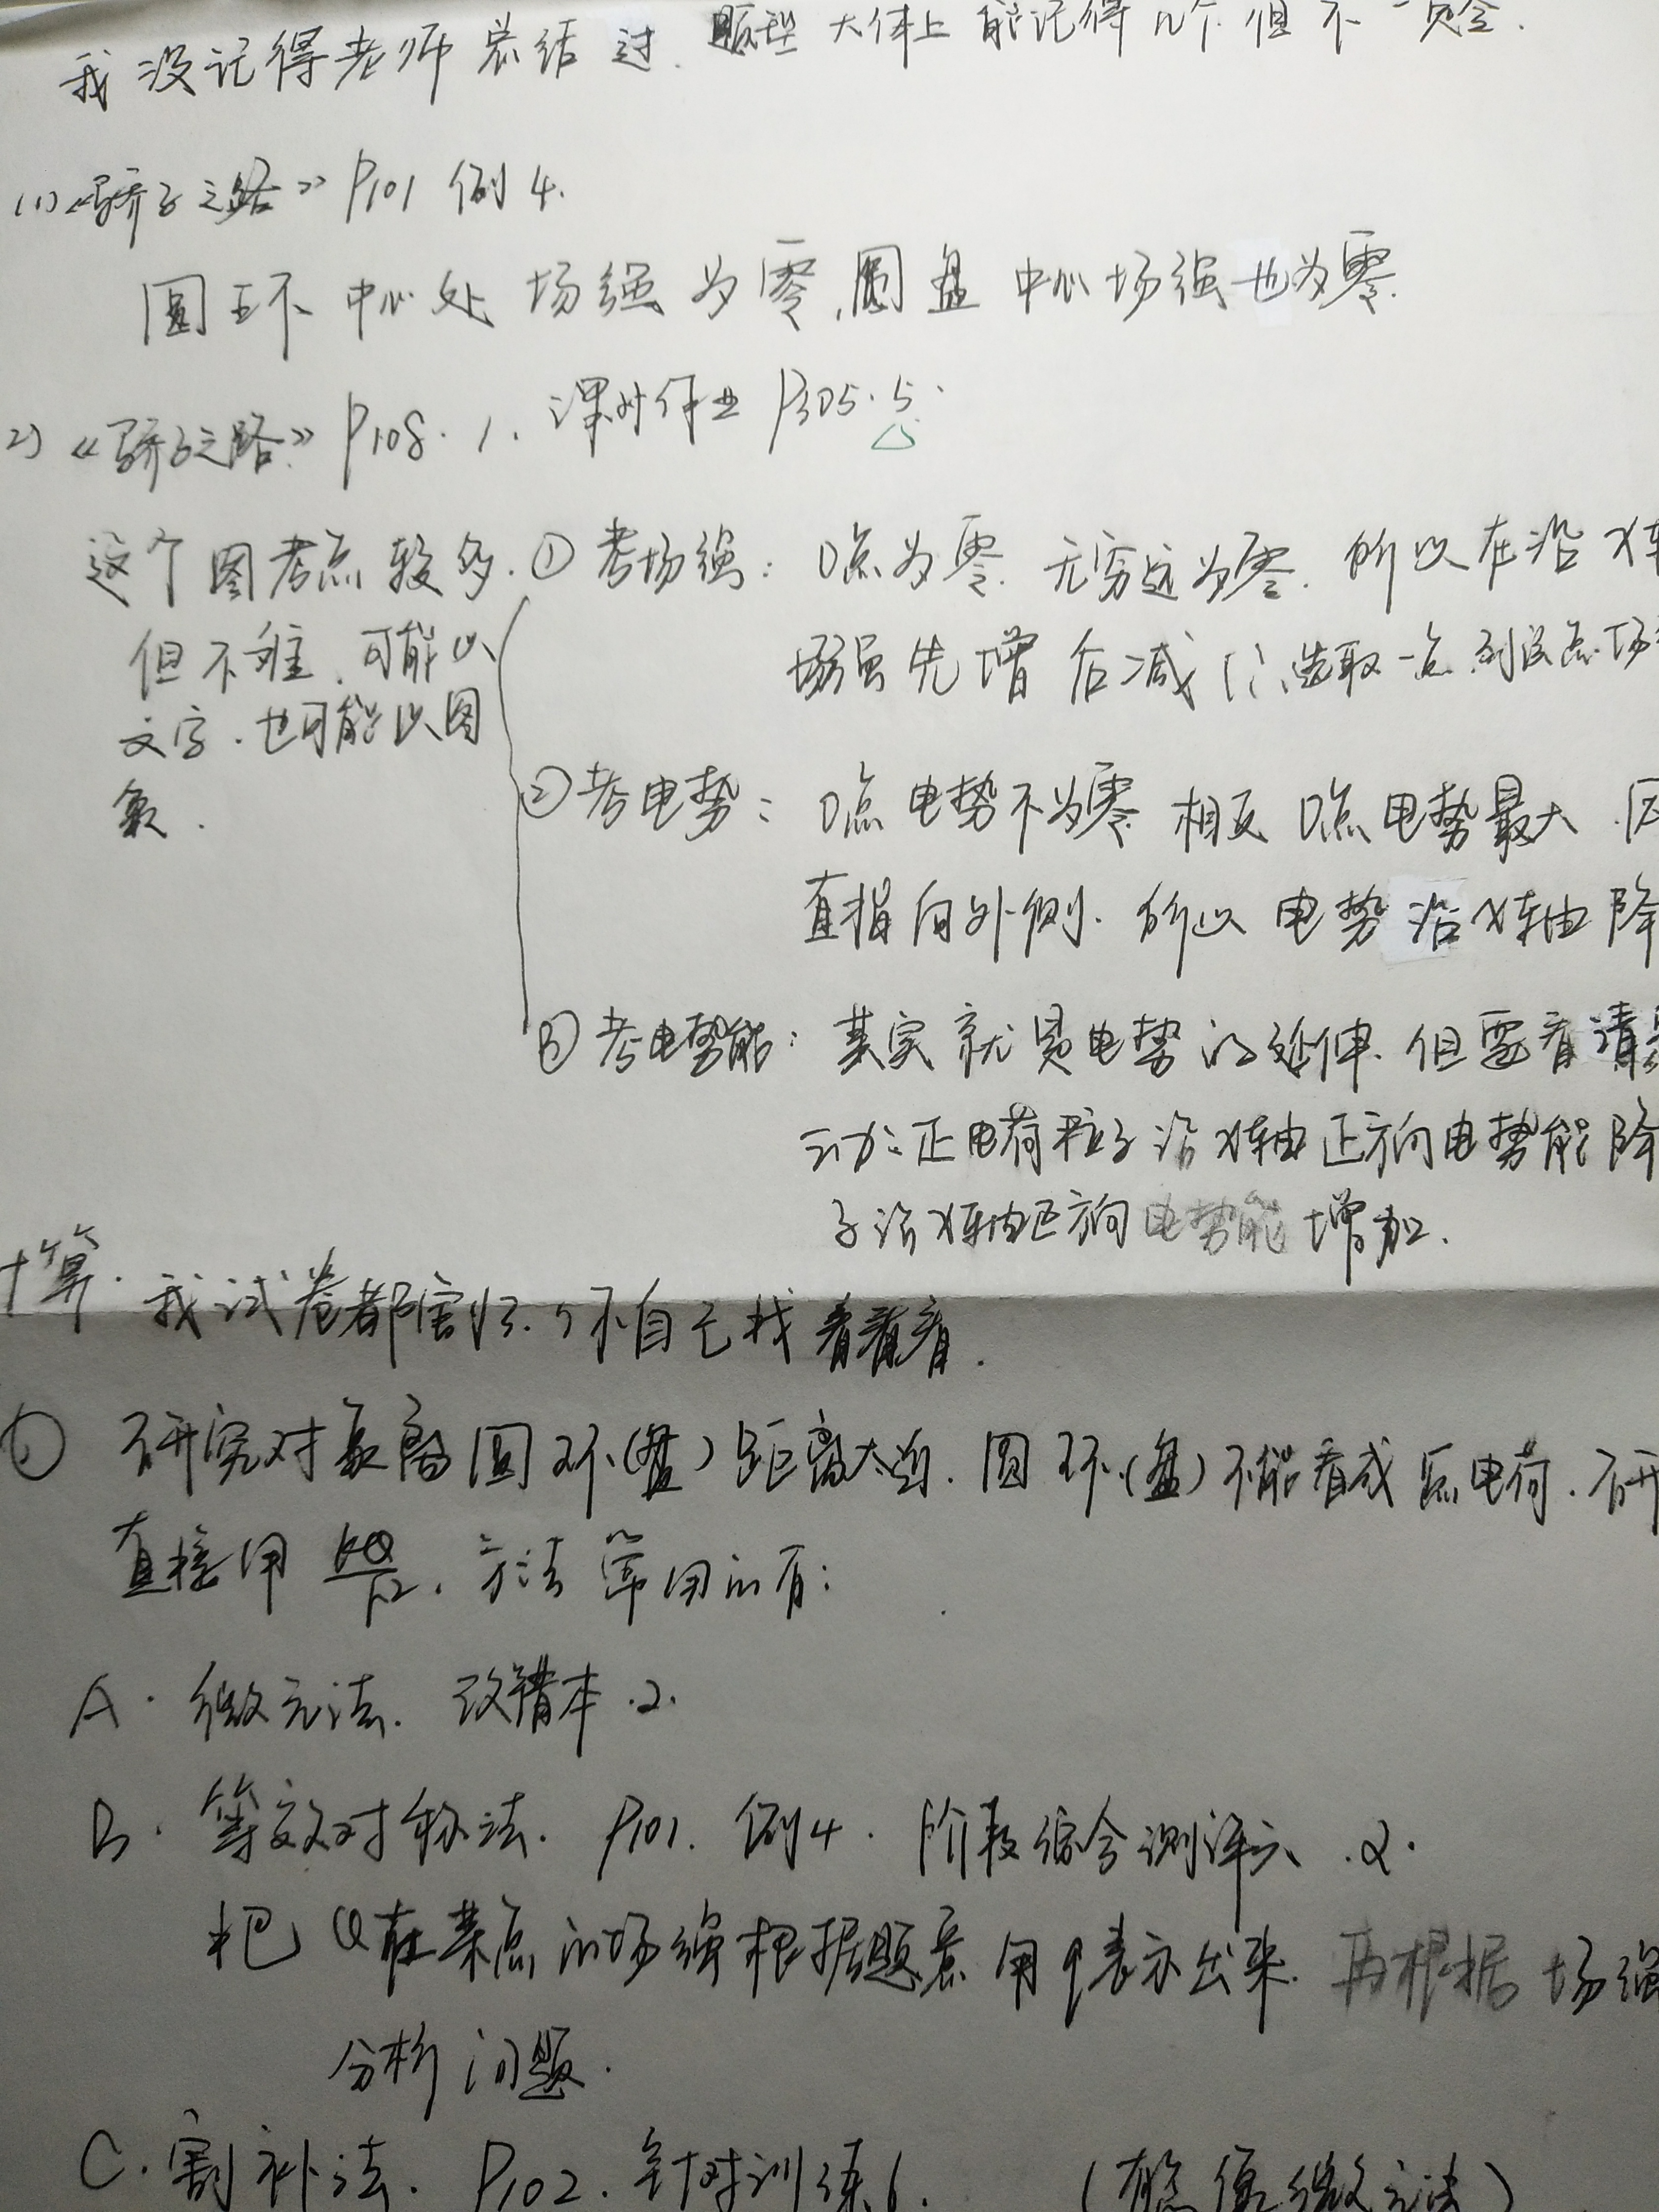 我没记得老师总结过.题型大体上能记得几个.但不一定全.
(1)《骄子之路》P101 例4.
圆环中心处场强为零,圆盘中心场强也为零.
2)《骄子之路》P108.1. 课时作业P305.5.
这个图考点较多.①考场强:O点为零.无穷远为零.所以在沿x轴
但不难,可能以 场强先增后减 选取一点到该点场
文字.也可能以图
象.
②考电势:O点电势不为零.相反O点电势最大.因
直指向外侧.所以电势沿x轴降
③考电势能:其实就是电势的延伸.但要看清是
动:正电荷粒子沿x轴正方向电势能降
子沿x轴正方向电势能增加.
计算.我试卷都 自己找看看.
① 研究对象离圆环(盘)距离太近.圆环(盘)不能看成点电荷.不
直接用 kQ/r². 方法常用的有:
A.微元法. 改错本.2.
B.等效对称法. P101.例4. 阶段综合测评六.2.
把Q在某点的场强根据题意用q表示出来.再根据场强
分析问题.
C.割补法. P102.针对训练1. (有点像微元法)